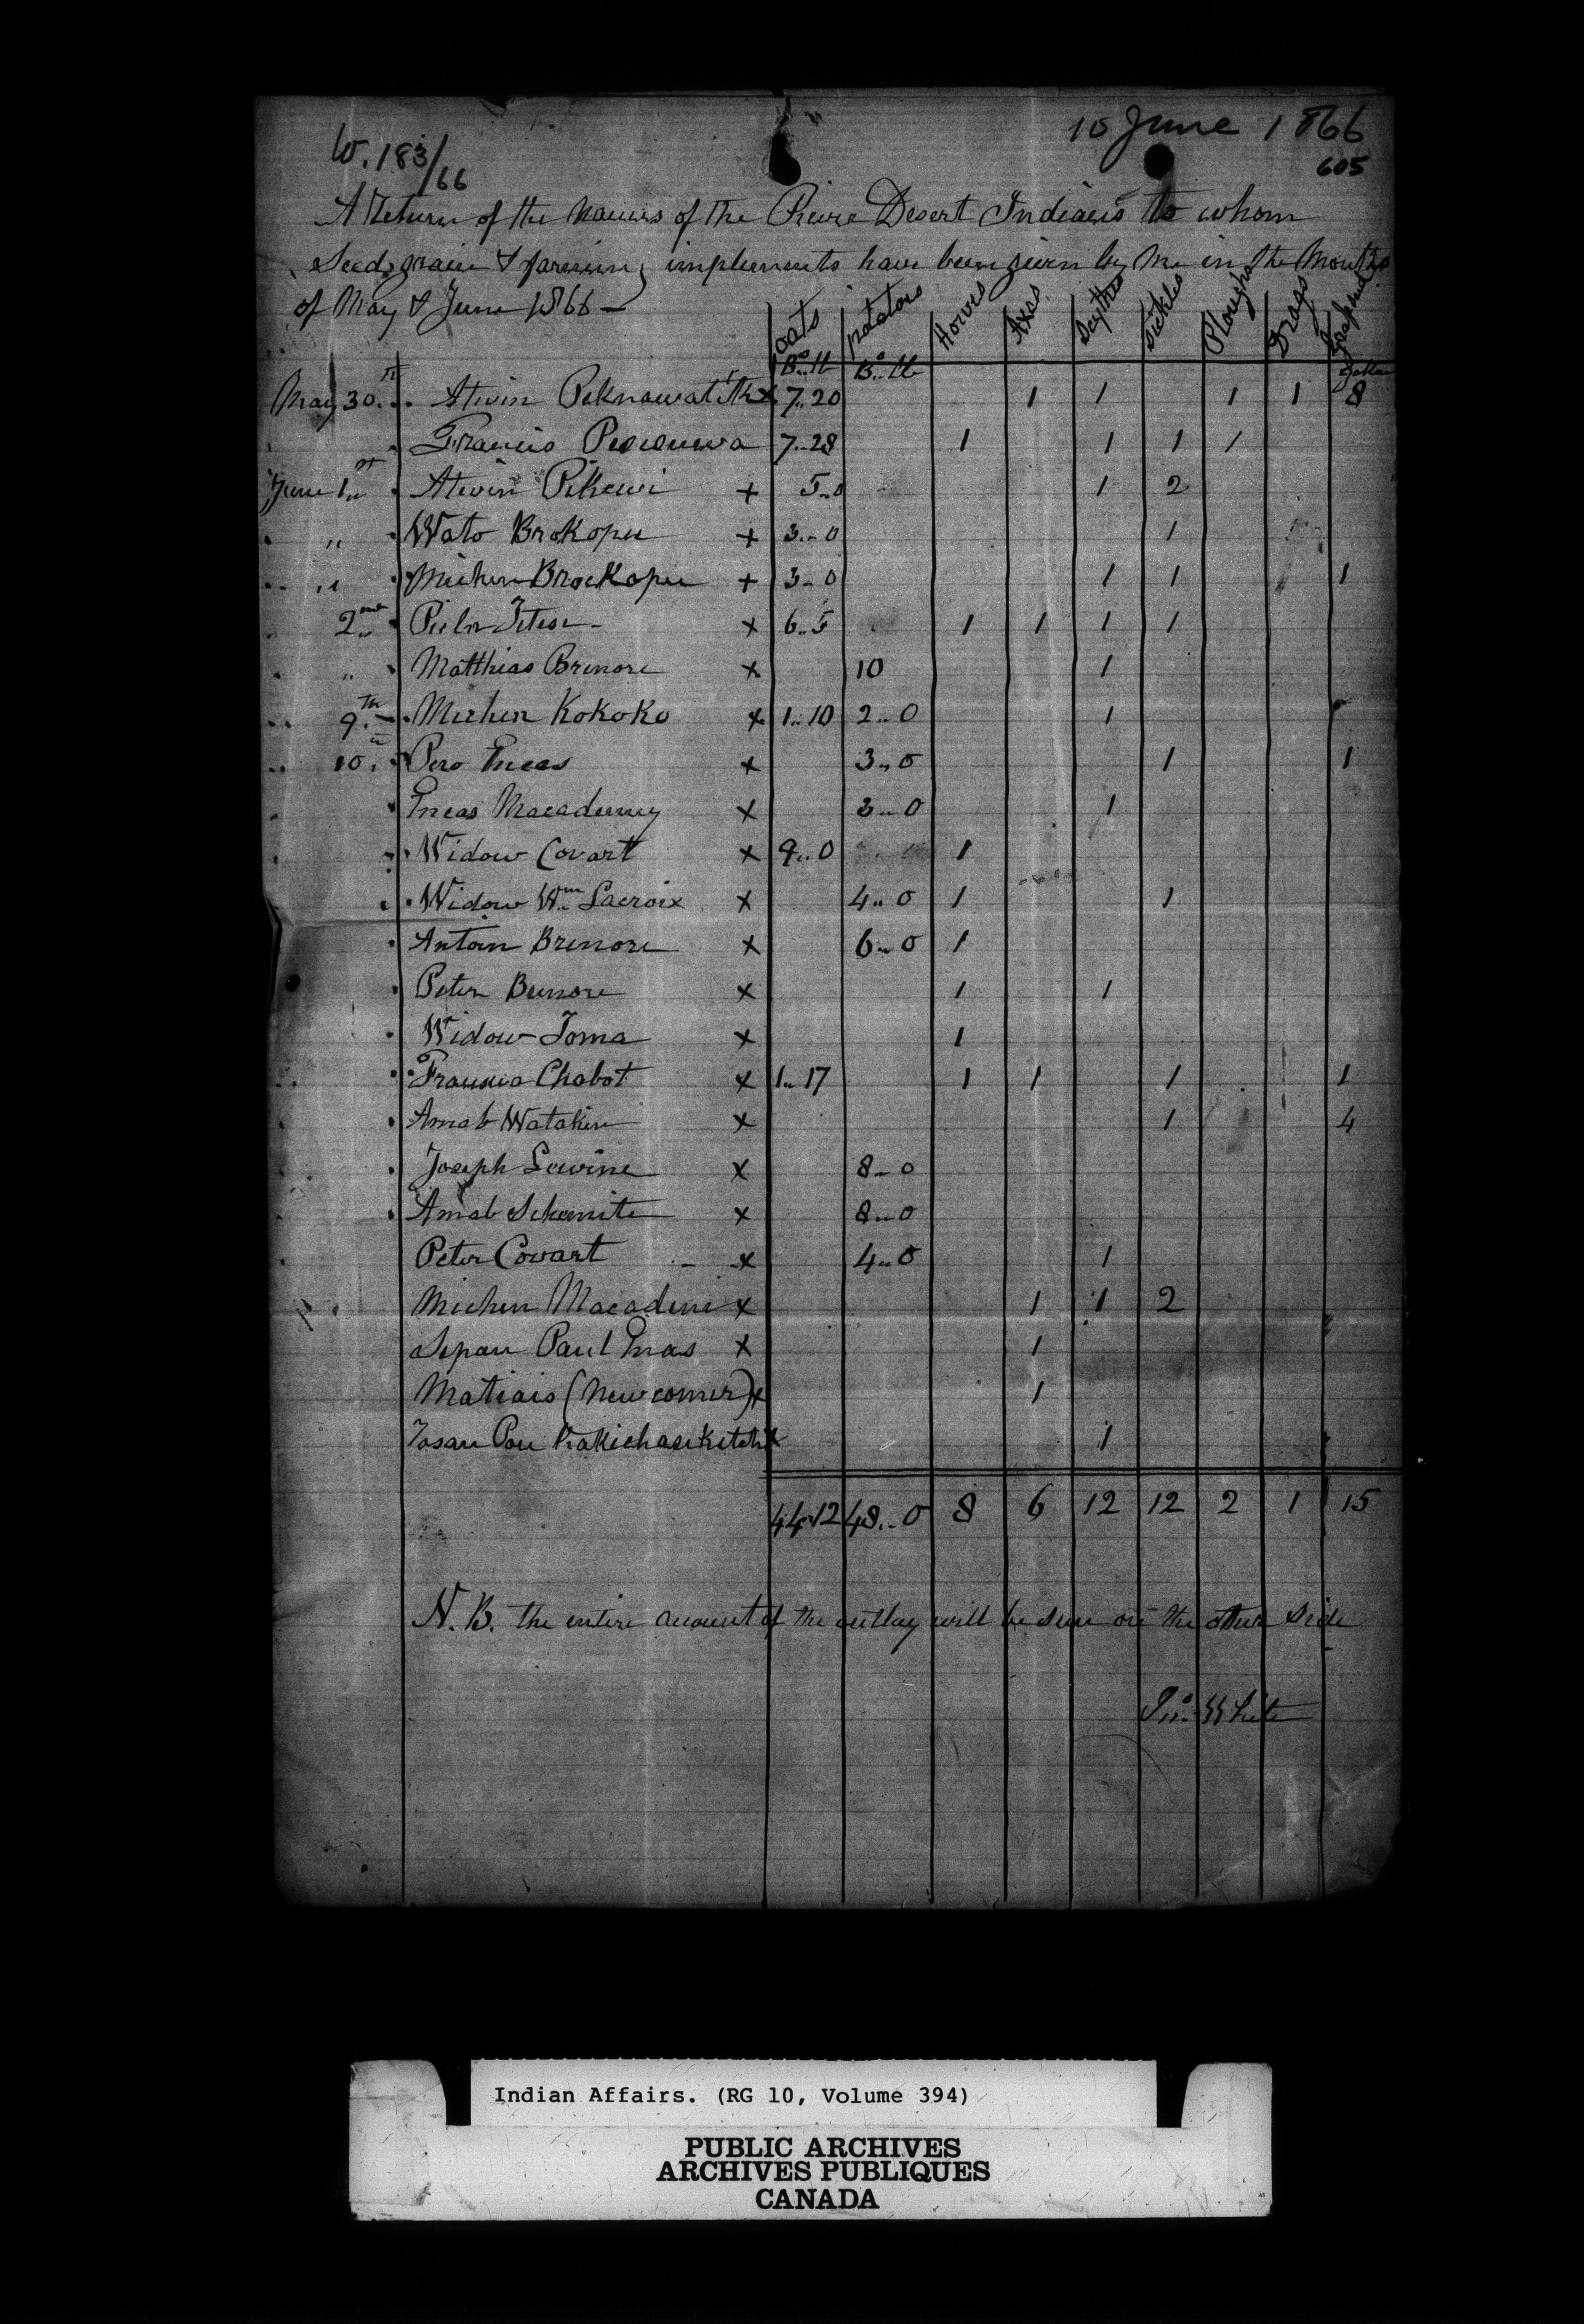 10 June 1866
W. 183/66
605
A Return of the Names of the River Desert Indians to whom
Seed, grain & farming implements have been given by me in the Months
of May & June 1866 —
oats potatoes Howes Axes Scythes Sickles Ploughs Drags
Bo..lb Bo..lb
May 30th Atwin x 7..20 1 1 1 1 8
Francis 7..28 1 1 1 1
June 1st Atwin Pikewi + 5..0 1 2
" Wato Brokopu + 3..0 1
" Michen Brockopu + 3..0 1 1 1
2nd x 6..5 1 1 1 1
" Matthias Brenore x 10 1
9th Michen Kokoko x 1..10 2..0 1
10th Pero Eneas x 3..0 1 1
Eneas x 3..0 1
Widow Covart x 9..0 1
Widow Wm Lacroix x 4..0 1 1
Antoin Brenore x 6..0 1
Peter Benore x 1 1
Widow Toma x 1
Chabot x 1..17 1 1 1 1
Amab Watakin x 1 4
Joseph Levine x 8..0
Amab x 8..0
Peter Covart x 4..0 1
Michen Macadeni x 1 1 2
Sepau Paul Enas x 1
Matiais (New comer) x 1
x 1
44..12 48..0 8 6 12 12 2 1 15
N.B. the entire account of the outlay will be seen on the other side
Jno. White
Indian Affairs. (RG 10, Volume 394)
PUBLIC ARCHIVES
ARCHIVES PUBLIQUES
CANADA